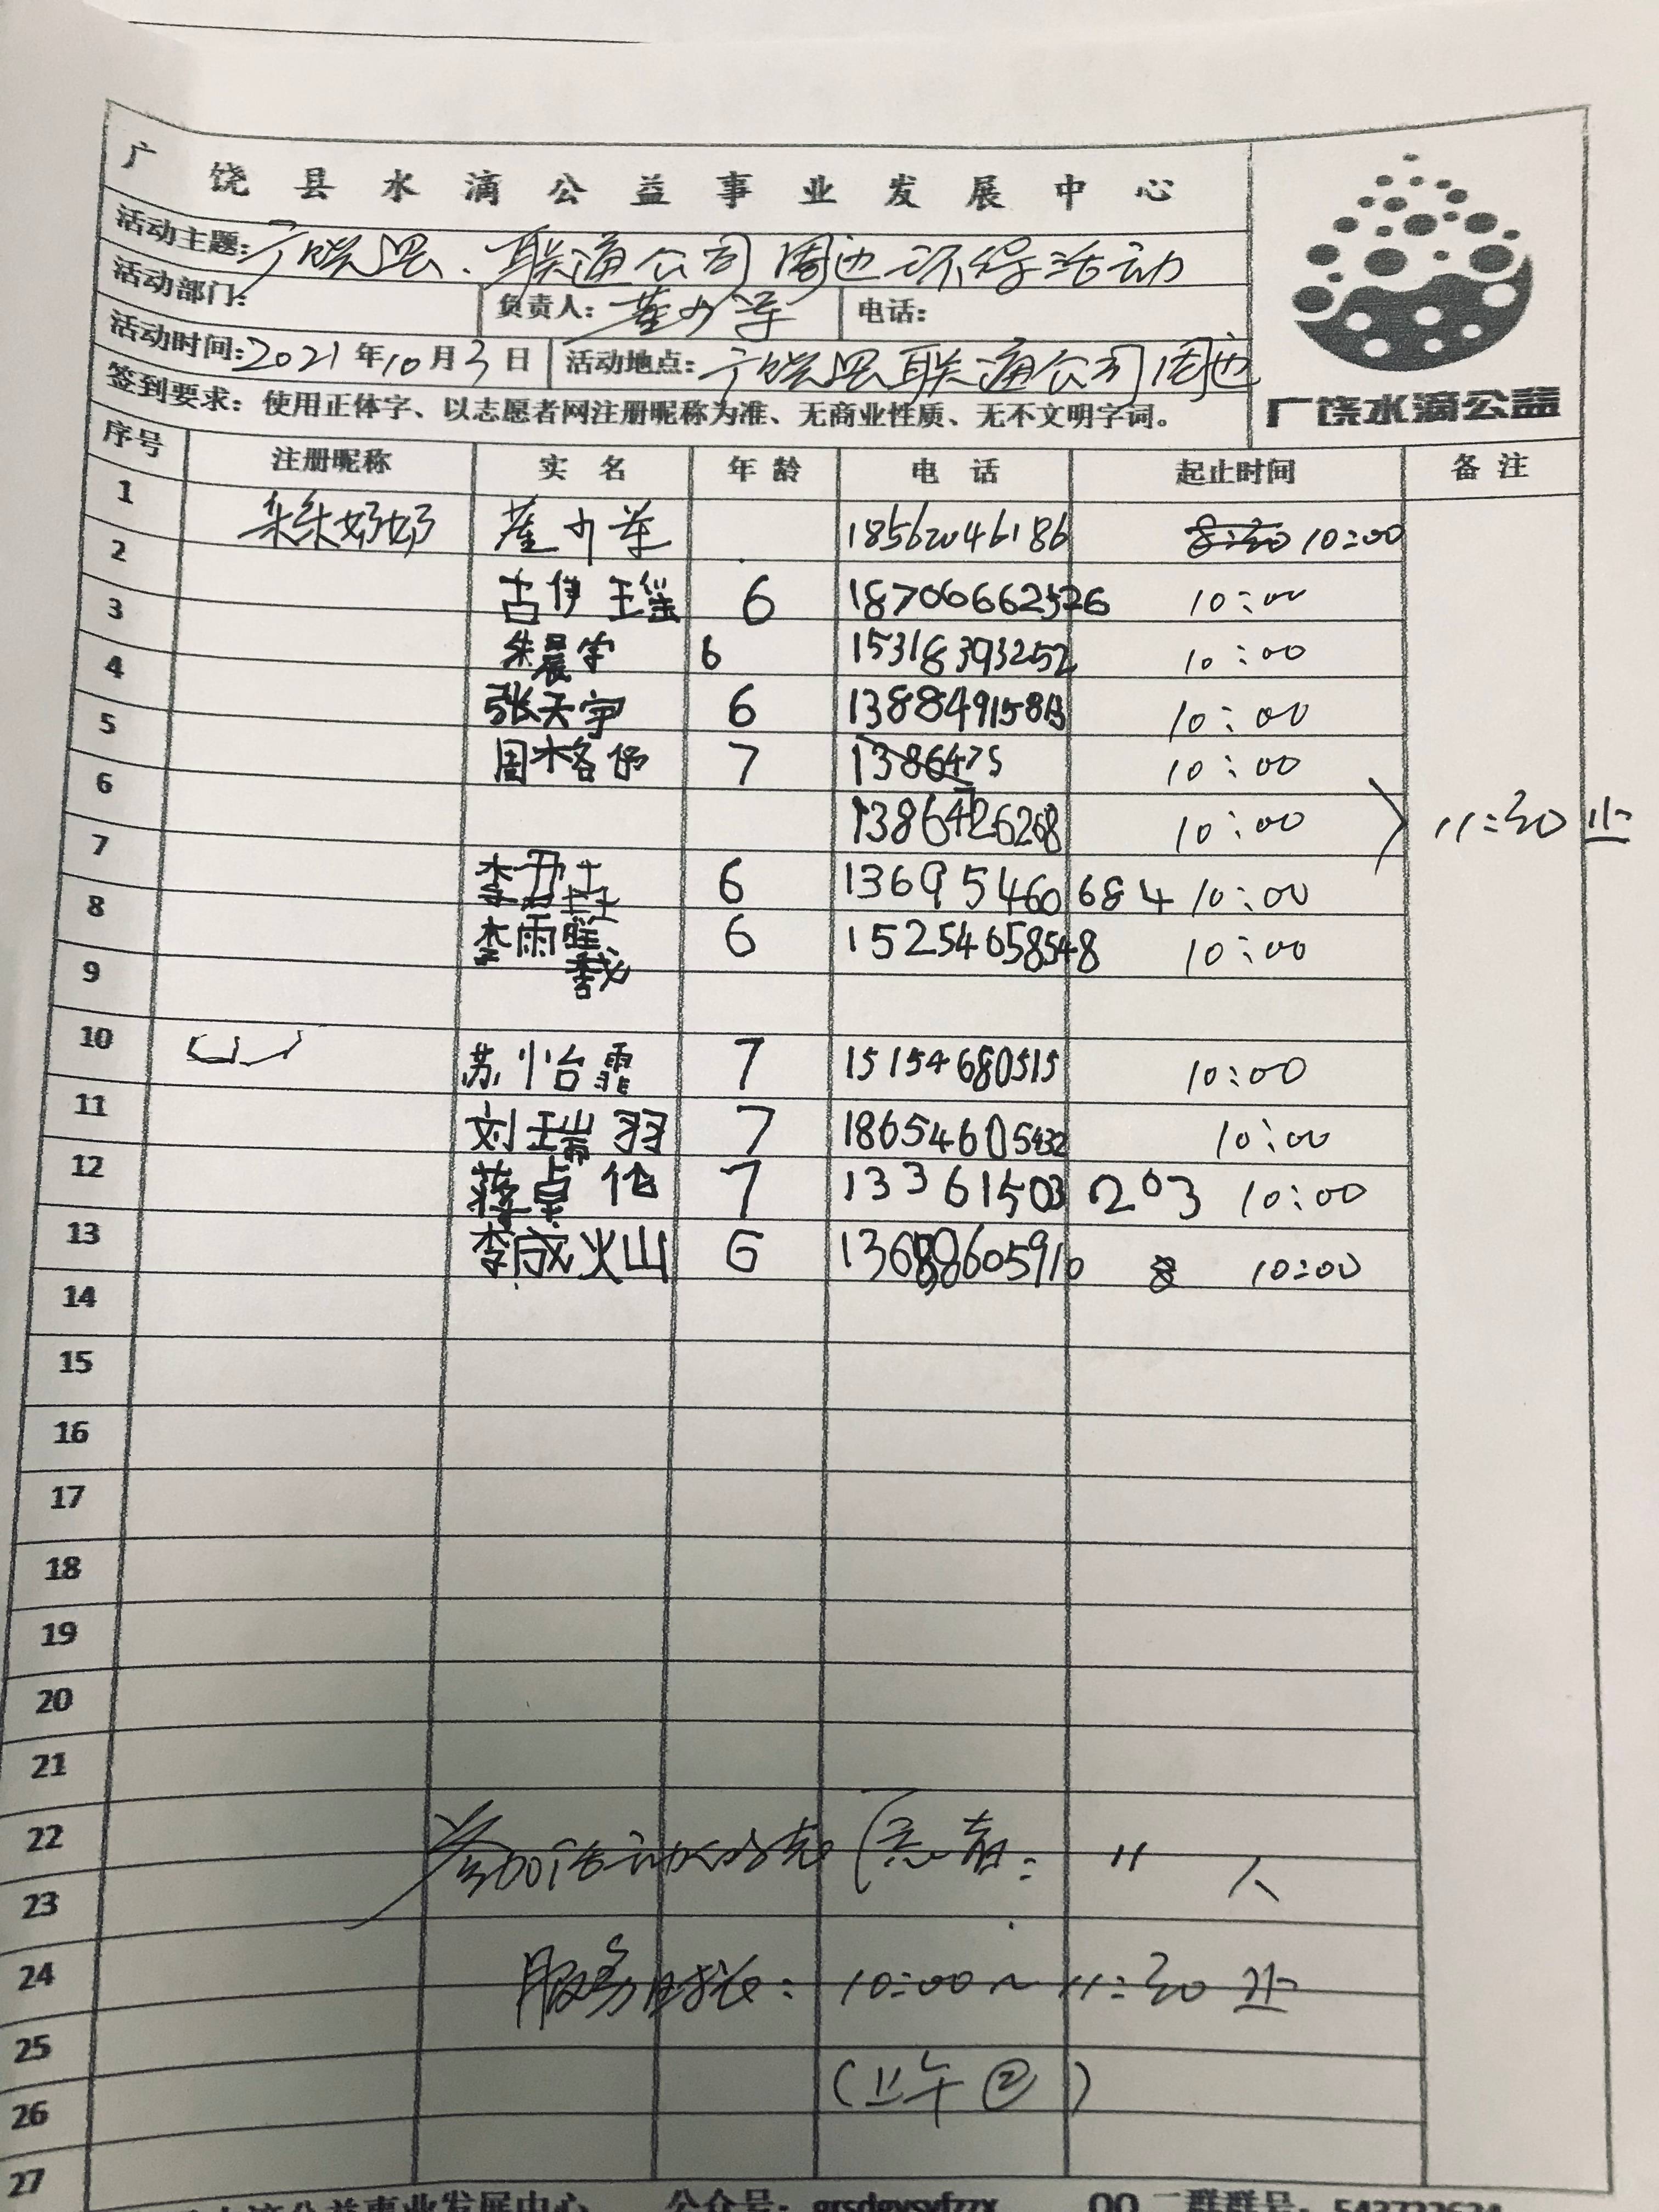 广饶县水滴公益事业发展中心
活动主题：广饶县.联通公司周边环保活动
活动部门： 负责人： 电话：
活动时间：2021年10月3日 活动地点：广饶县联通公司周边
签到要求：使用正体字、以志愿者网注册昵称为准、无商业性质、无不文明字词。
广饶水滴公益
序号 注册昵称 实名 年龄 电话 起止时间 备注
1 朵朵奶奶 18562046186 10:00
2 古伊瑶 6 18706662526 10:00
3 朱晨宇 6 15318393252 10:00
4 张天宇 6 10:00
5 周 7 10:00
6 13864626268 10:00 11:30止
7 李 6 13695460684 10:00
8 李雨 6 15254658548 10:00
9
10 苏怡霏 7 15154680515 10:00
11 刘瑞羽 7 18654605432 10:00
12 蒋卓 7 10:00
13 李成灿 6 10:00
14
15
16
17
18
19
20
21
22 参加活动 志愿者： 11 人
23
24 服务时长：10:00~11:30止
25 (上午②)
26
27
公益事业发展中心 公众号：grsdgysyfzzx QQ二群群号：543722624